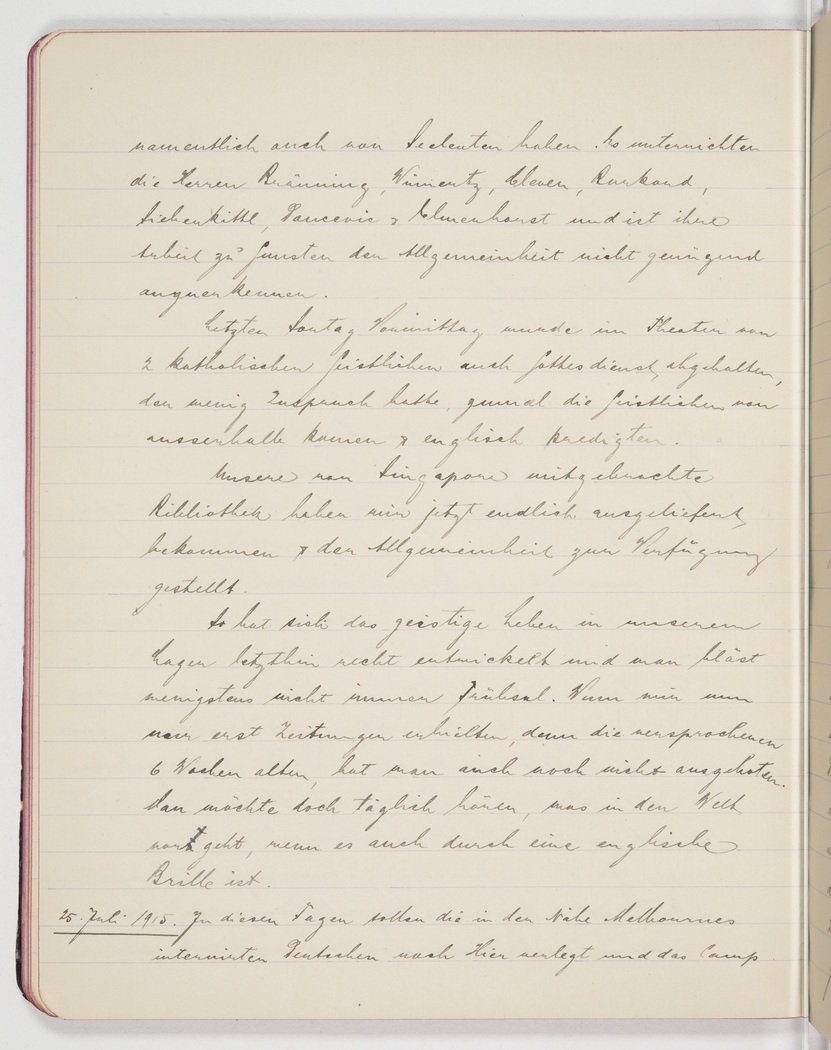 namentlich auch von Seeleuten haben. Es unterrichten
die Herren Bränning, Wimentz, Cleven, Burkard,
Siebenkittl, Pancevic & Elmenhorst und ist ihre
Arbeit zu Gunsten der Allgemeinheit nicht genügend
anzuerkennen.
Letzten Sontag Vormittag wurde im Theater von
2 katholischen Geistlichen auch Gottesdienst, abgehalten,
der wenig Zuspruch hatte, zumal die Geistlichen von
ausserhalb kamen & englisch predigten.
Unsere von Singapore mitgebrachte
Bibliothek haben wir jetzt endlich ausgeliefert
bekommen & der Allgemeinheit zur Verfügung
gestellt.
So hat sich das geistige Leben in unserem
Lager letzthin recht entwickelt und man bläst
wenigstens nicht immer Trübsal. Wenn wir nun
nur erst Zeitungen erhielten, denn die versprochenen
6 Wochen alten, hat man auch noch nicht ausgeboten.
Man möchte doch täglich hören, was in der Welt
vor geht, wenn es auch durch eine englische
Brille ist.
25. Juli 1915. In diesen Tagen sollen die in der Nähe Melbournes
internirten Deutschen nach Hier verlegt und das Camp